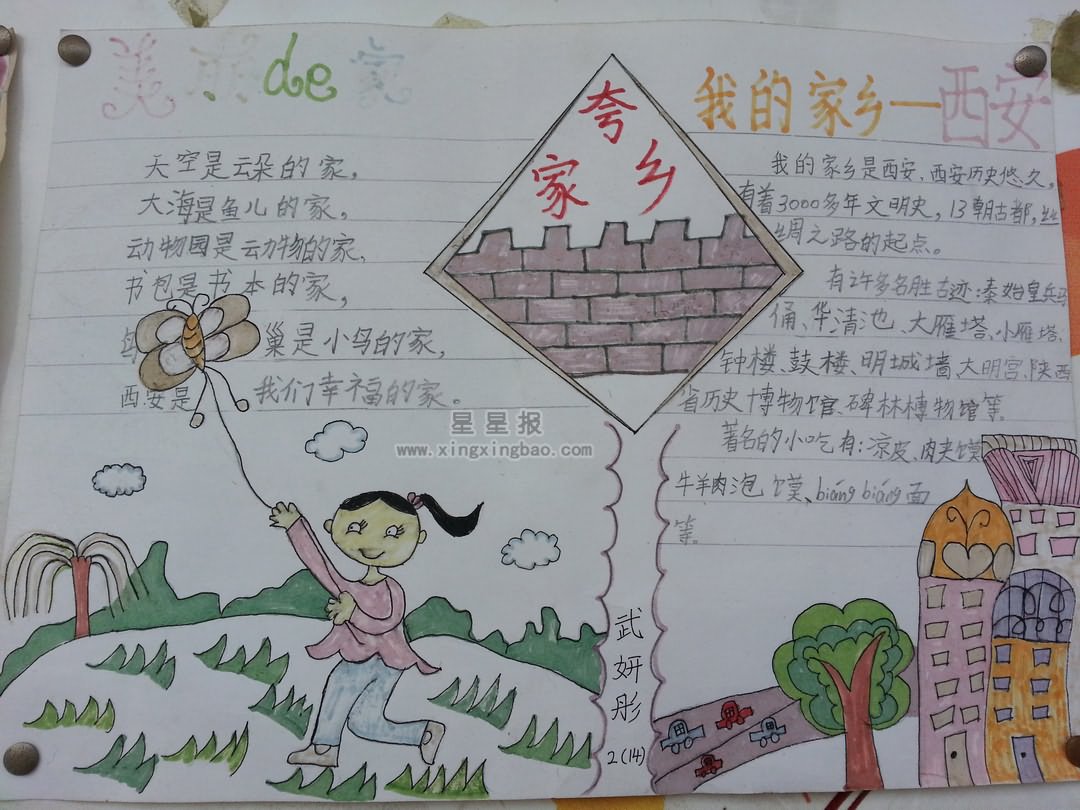 美丽de家
天空是云朵的家，
大海是鱼儿的家，
动物园是动物的家，
书包是书本的家，
巢是小鸟的家，
西安是我们幸福的家。
夸
家乡
我的家乡—西安
我的家乡是西安、西安历史悠久，
有着3000多年文明史，13朝古都，丝
绸之路的起点。
有许多名胜古迹：秦始皇兵马
俑、华清池、大雁塔、小雁塔、
钟楼、鼓楼、明城墙、大明宫、陕西
省历史博物馆、碑林博物馆等。
著名的小吃有：凉皮、肉夹馍
牛羊肉泡馍、biángbiáng面
等。
星星报
www.xingxingbao.com
武妍彤
2(14)